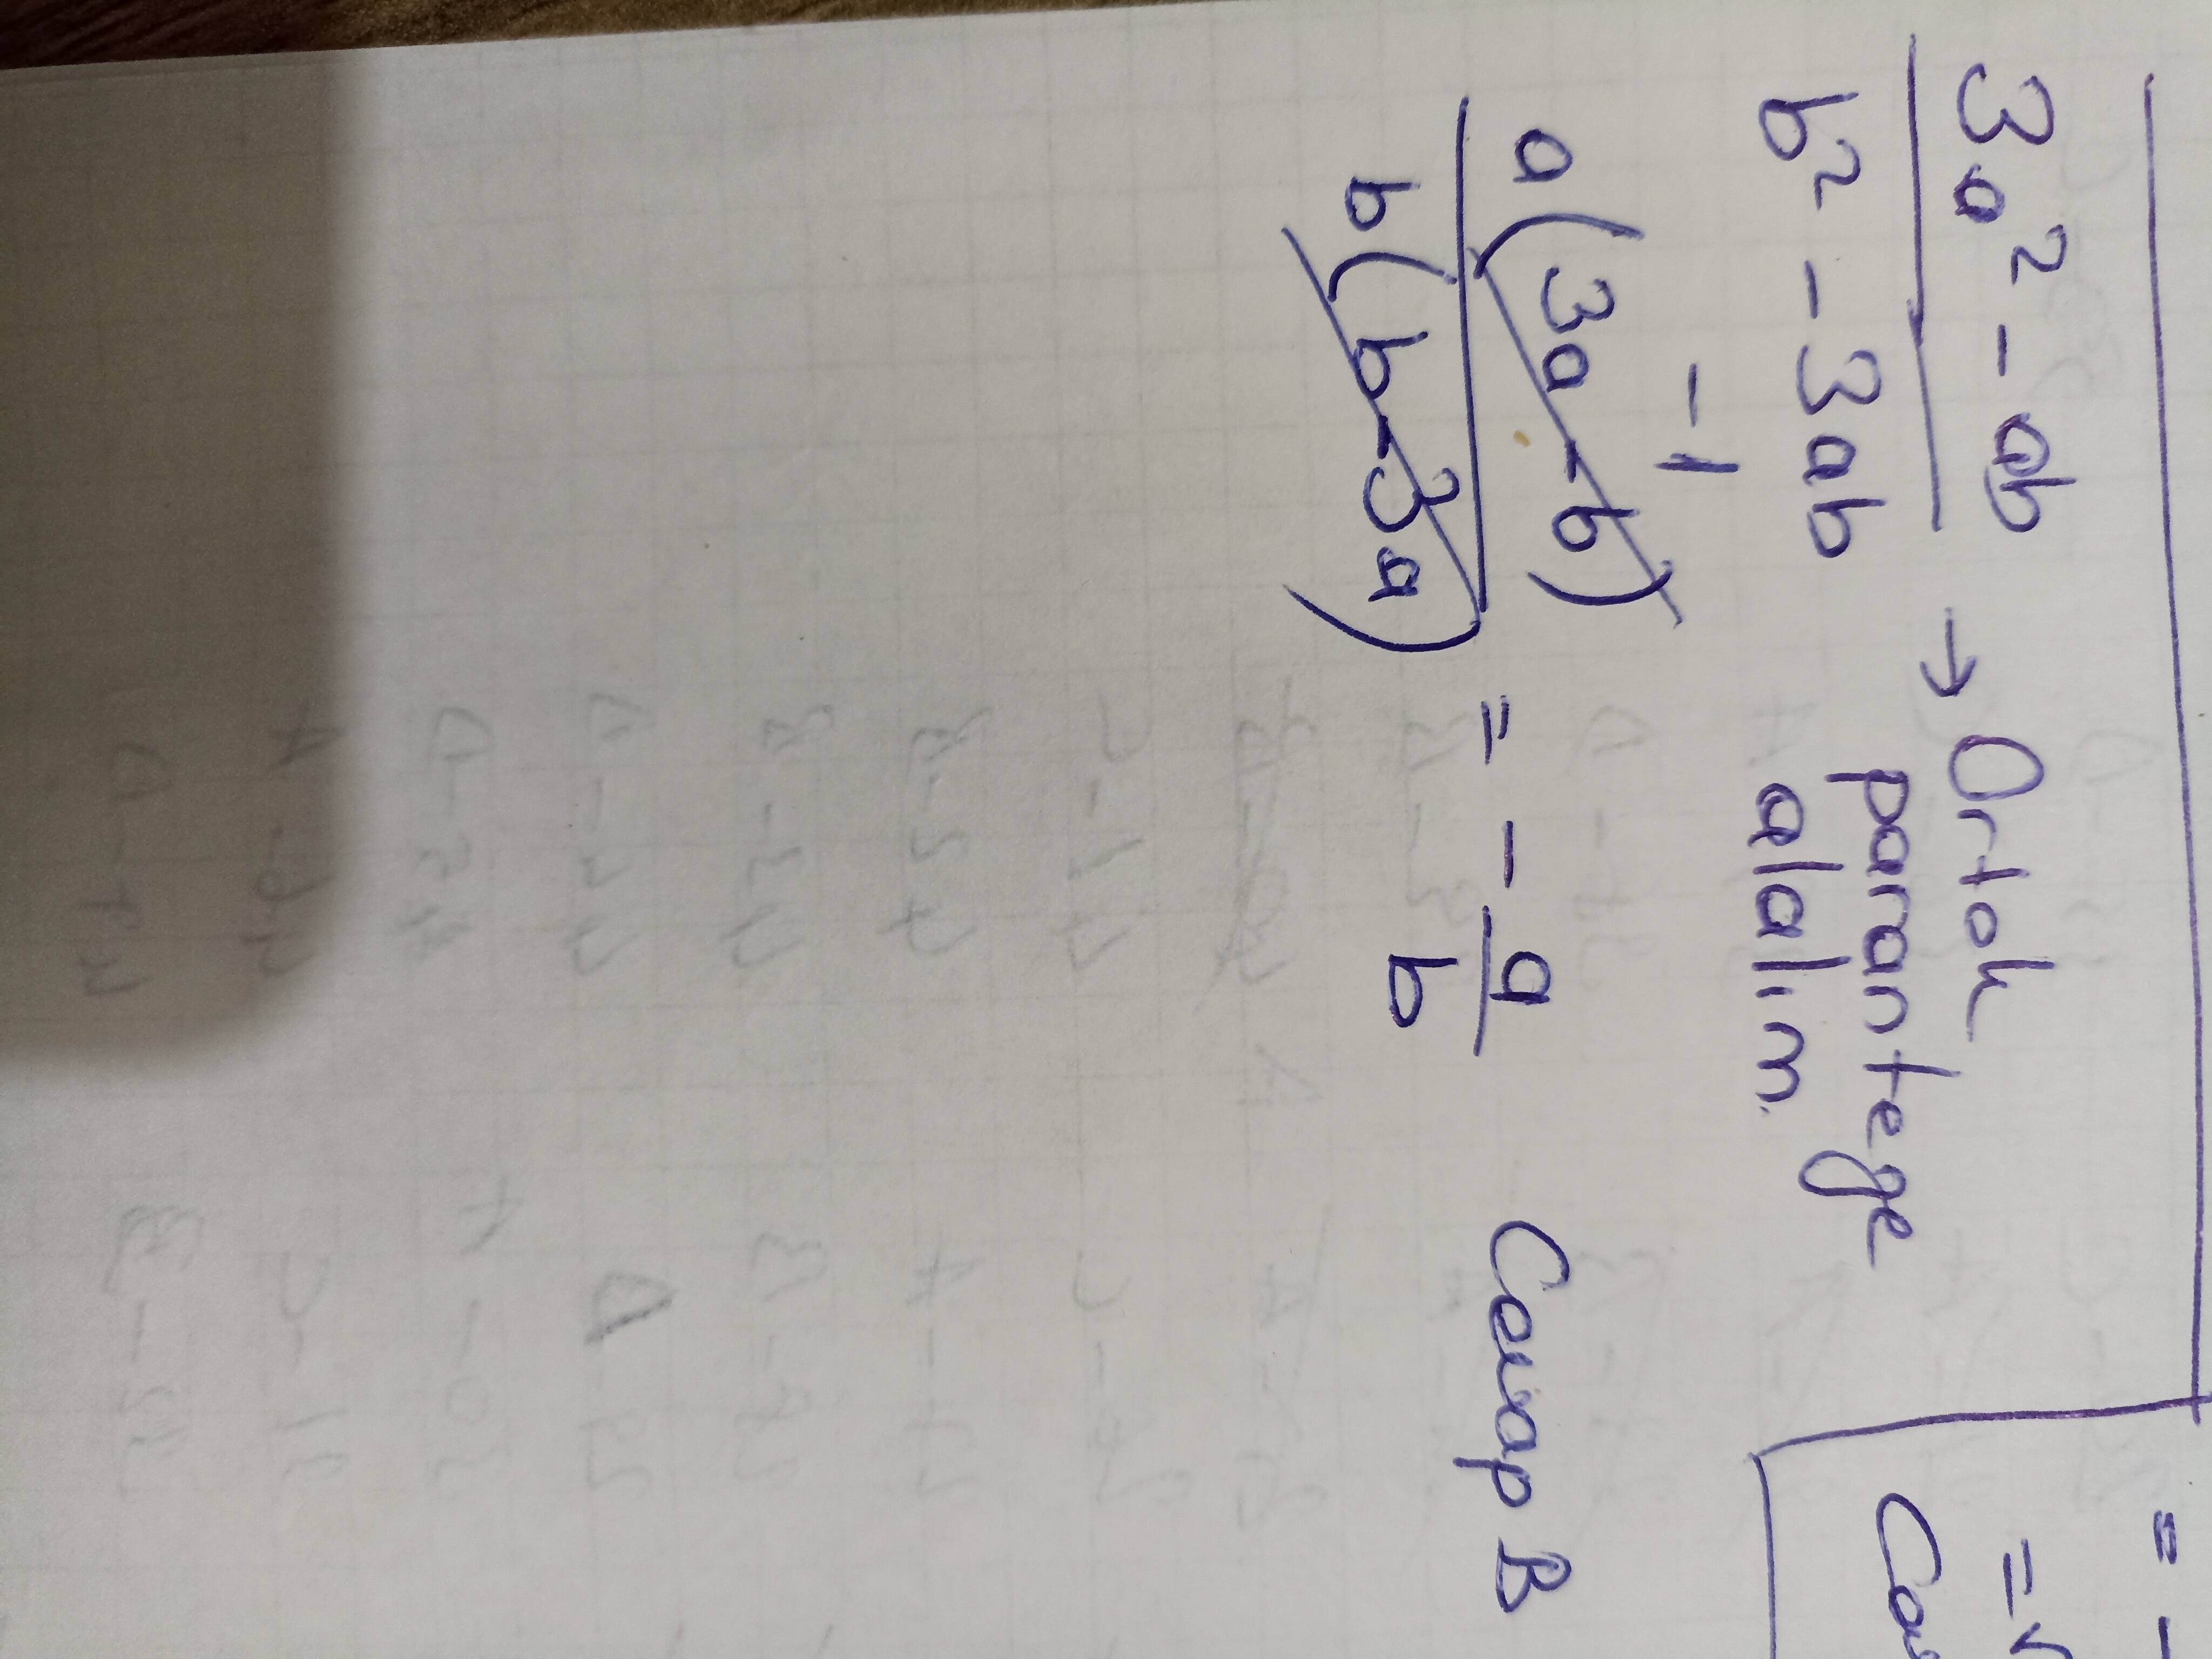 3a² - ab
b² - 3ab
→ Ortak
paranteze
alalım.
-1
a(3a-b)
b(b-3a)
= - a
b
Cevap B
= -
=